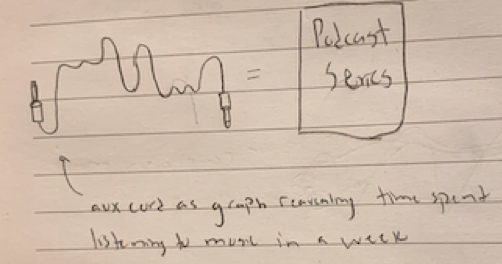 =
Podcast
Series
aux cord as graph revealing time spent
listening to music in a week